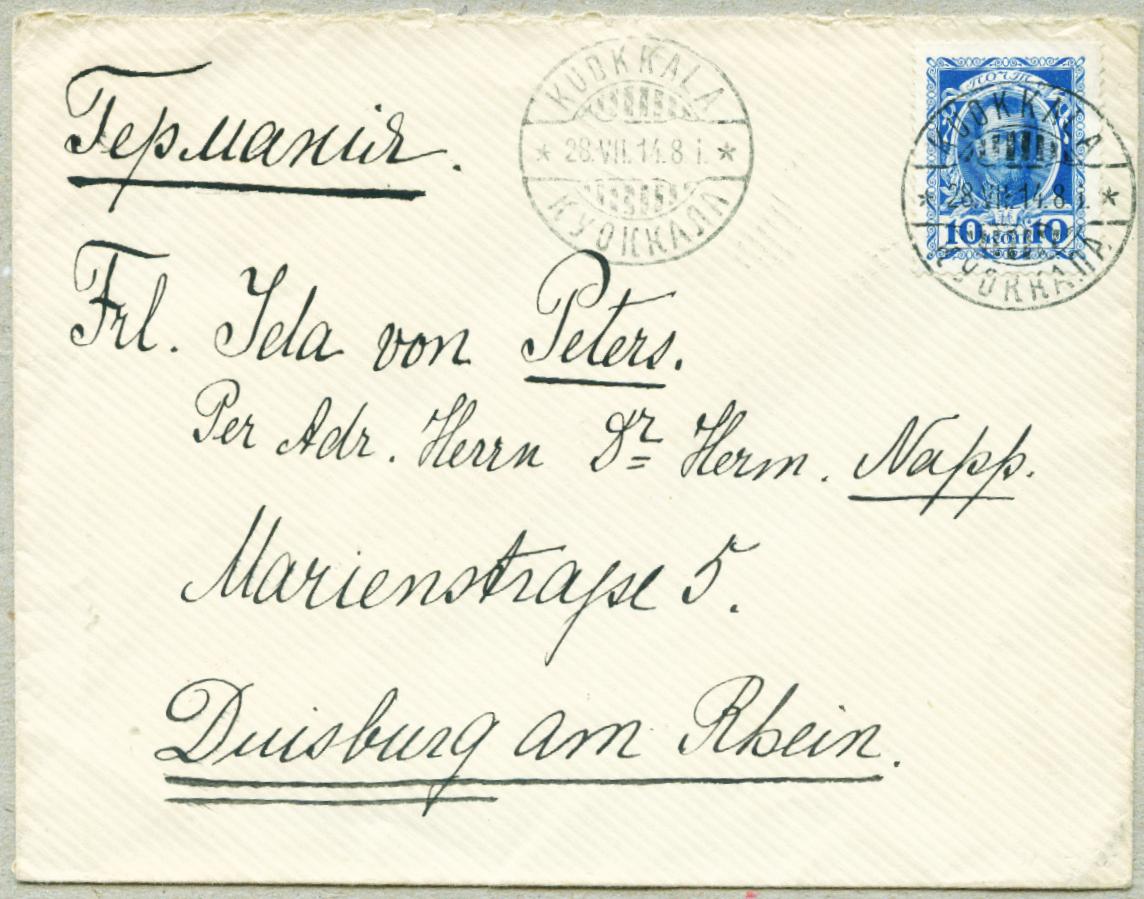 Германія.
KUOKKALA
* 28.VII.14.8 i. *
КУОККАЛА
ПОЧТА
KUOKKALA
* 28.VII.14.8 i. *
10 КОП 10
КУОККАЛА
Frl. Ida von Peters.
Per Adr. Herrn Dr Herm. Napp.
Marienstraße 5.
Duisburg am Rhein.